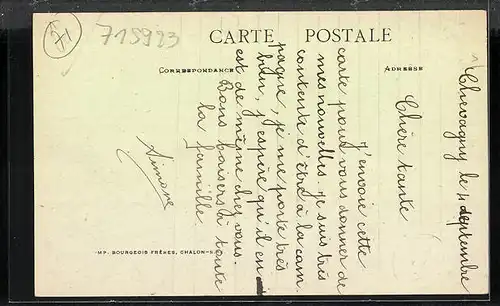 715923
CARTE POSTALE
CORRESPONDANCE
ADRESSE
Chevagny le 4 septembre
Chère tante
J'envoie cette
carte pour vous donner de
mes nouvelles. Je suis très
contente d'être à la cam
pagne, je me porte très
bien, j'espère qu'il en
est de même chez vous.
Bons baisers à toute
la famille
Simone
IMP. BOURGEOIS FRÈRES, CHALON-S